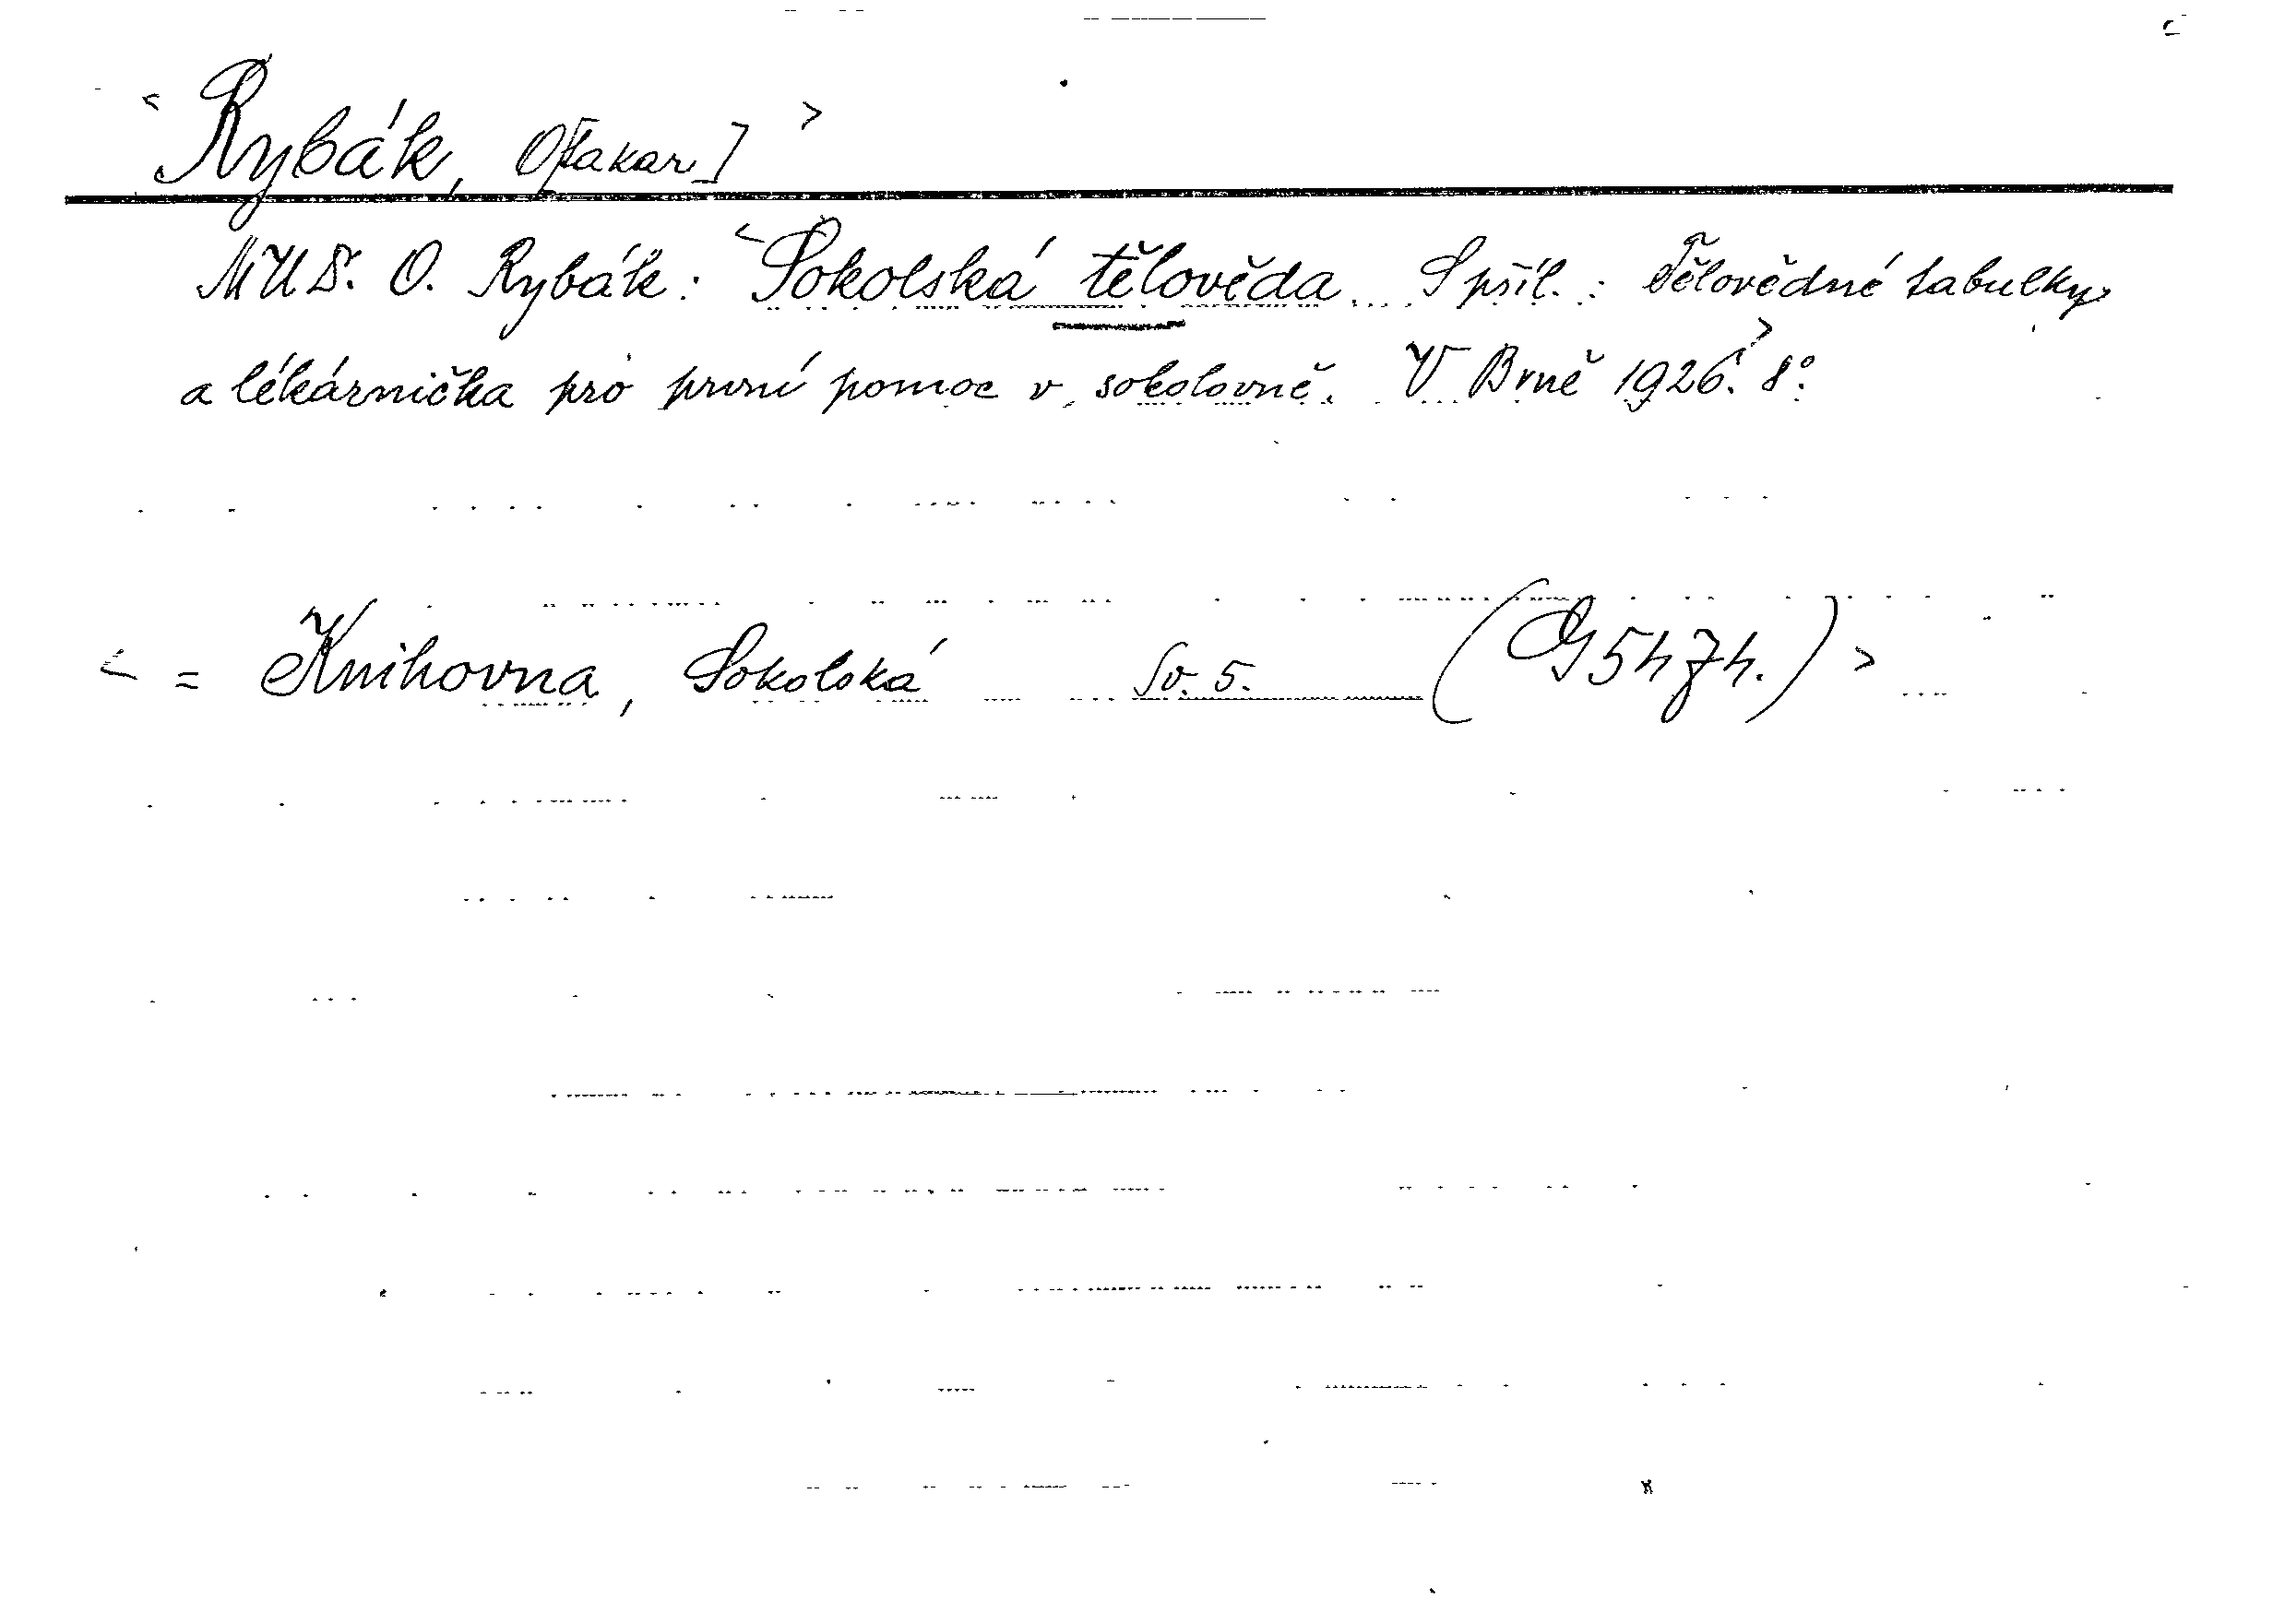 < Rybák, O[takar] >
MUDr. O. Rybák: < Sokolská tělověda. S příl.: Tělovědné tabulky
a lékárnička pro první pomoc v sokolovně. V Brně 1926. > 8°.
< = Knihovna, Sokolská Sv. 5. (G 5474.) >